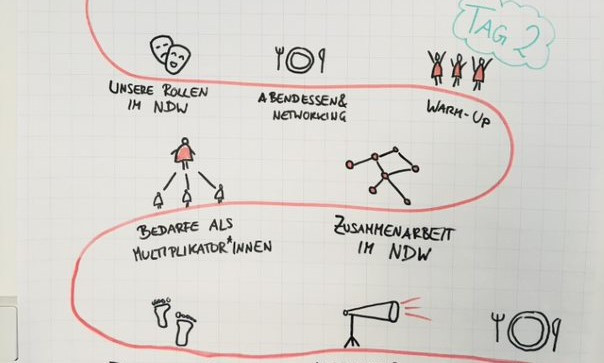 TAG 2
UNSERE ROLLEN
IM NDW
ABENDESSEN &
NETWORKING
WARM-UP
BEDARFE ALS
MULTIPLIKATOR*INNEN
ZUSAMMENARBEIT
IM NDW